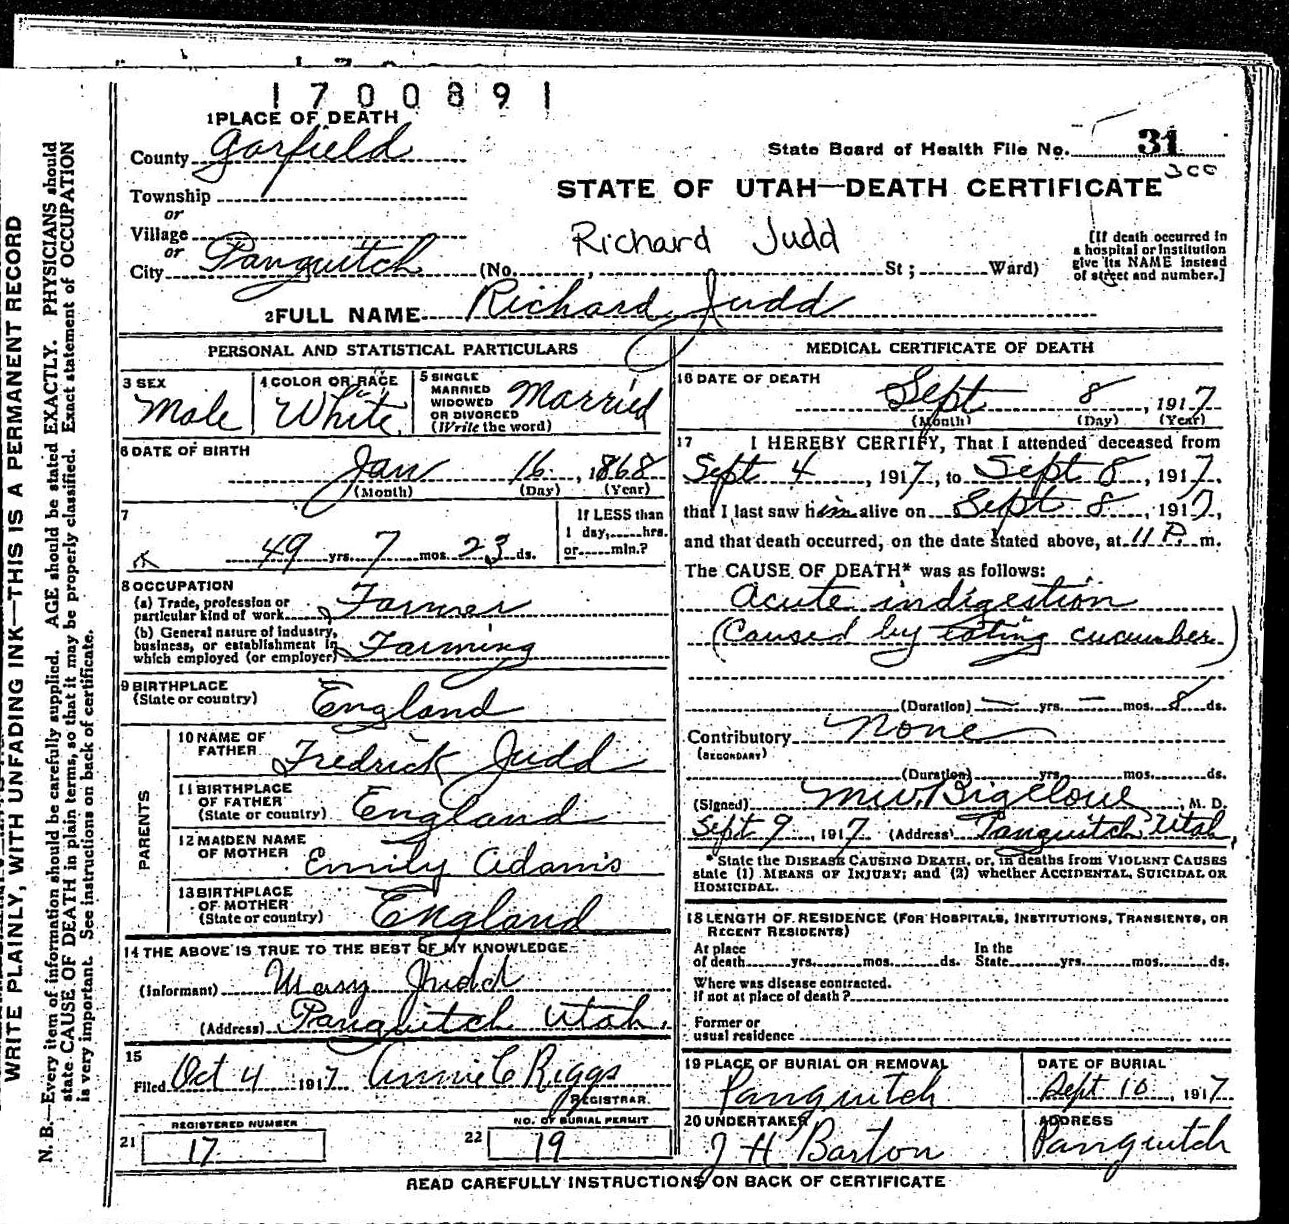 1700891
1 PLACE OF DEATH
County Garfield
State Board of Health File No. 31
300
Township
STATE OF UTAH—DEATH CERTIFICATE
or
Village
Richard Judd
or
City Panguitch (No. , St ; Ward)
[If death occurred in
a hospital or institution
give its NAME instead
of street and number.]
2 FULL NAME Richard Judd
PERSONAL AND STATISTICAL PARTICULARS
3 SEX
Male
4 COLOR OR RACE
White
5 SINGLE
MARRIED
WIDOWED
OR DIVORCED
(Write the word)
Married
6 DATE OF BIRTH
Jan 16, 1868
(Month) (Day) (Year)
7
49 yrs. 7 mos. 23 ds.
If LESS than
1 day, hrs.
or min.?
8 OCCUPATION
(a) Trade, profession or
particular kind of work Farmer
(b) General nature of industry,
business, or establishment in
which employed (or employer) Farming
9 BIRTHPLACE
(State or country) England
PARENTS
10 NAME OF
FATHER Fredrick Judd
11 BIRTHPLACE
OF FATHER
(State or country) England
12 MAIDEN NAME
OF MOTHER Emily Adams
13 BIRTHPLACE
OF MOTHER
(State or country) England
14 THE ABOVE IS TRUE TO THE BEST OF MY KNOWLEDGE
(Informant) Mary Judd
(Address) Panguitch Utah.
15
Filed Oct 4 1917 Annie C Riggs
REGISTRAR.
REGISTERED NUMBER
21 17
NO. OF BURIAL PERMIT
22 19
MEDICAL CERTIFICATE OF DEATH
16 DATE OF DEATH
Sept 8, 1917
(Month) (Day) (Year)
17 I HEREBY CERTIFY, That I attended deceased from
Sept 4, 1917, to Sept 8, 1917,
that I last saw him alive on Sept 8, 1917,
and that death occurred, on the date stated above, at 11 P. m.
The CAUSE OF DEATH* was as follows:
Acute indigestion
(Caused by eating cucumber)
(Duration) — yrs. — mos. 8 ds.
Contributory None
(SECONDARY)
(Duration) yrs. mos. ds.
(Signed) M.W. Bigelow, M. D.
Sept 9, 1917 (Address) Panguitch Utah,
* State the DISEASE CAUSING DEATH, or, in deaths from VIOLENT CAUSES
state (1) MEANS OF INJURY; and (2) whether ACCIDENTAL, SUICIDAL OR
HOMICIDAL.
18 LENGTH OF RESIDENCE (FOR HOSPITALS, INSTITUTIONS, TRANSIENTS, OR
RECENT RESIDENTS)
At place In the
of death yrs. mos. ds. State yrs. mos. ds.
Where was disease contracted.
If not at place of death?
Former or
usual residence
19 PLACE OF BURIAL OR REMOVAL
Panguitch
DATE OF BURIAL
Sept 10, 1917
20 UNDERTAKER
J H Barton
ADDRESS
Panguitch
READ CAREFULLY INSTRUCTIONS ON BACK OF CERTIFICATE
WRITE PLAINLY, WITH UNFADING INK—THIS IS A PERMANENT RECORD
N. B.—Every item of information should be carefully supplied. AGE should be stated EXACTLY. PHYSICIANS should
state CAUSE OF DEATH in plain terms, so that it may be properly classified. Exact statement of OCCUPATION
is very important. See instructions on back of certificate.